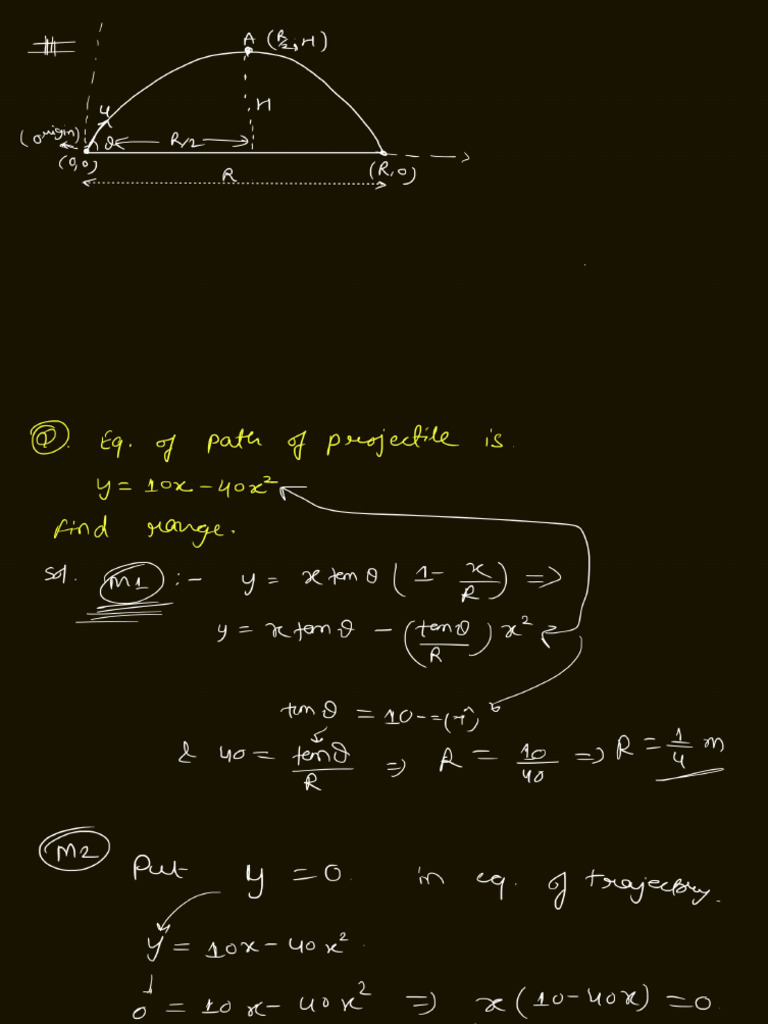 #
A (R/2, H)
H
u
(origin)
θ
R/2
(0,0)
(R,0)
R
Q. Eq. of path of projectile is.
y = 10x - 40x²
find range.
Sol. M1 :- y = x tan θ (1 - x/R) =>
y = x tan θ - (tan θ/R) x²
tan θ = 10 --- (i)
& 40 = tan θ/R => R = 10/40 => R = 1/4 m
M2 Put y = 0. in eq. of trajectory.
y = 10x - 40x².
0 = 10x - 40x² => x(10 - 40x) = 0